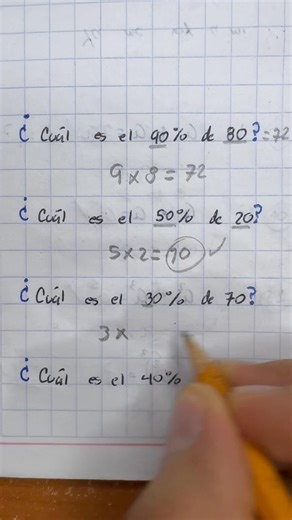 ¿ Cuál es el 90% de 80? = 72
9 x 8 = 72
¿ Cuál es el 50% de 20?
5 x 2 = 10 ✓
¿ Cuál es el 30% de 70?
3 x
¿ Cuál es el 40%